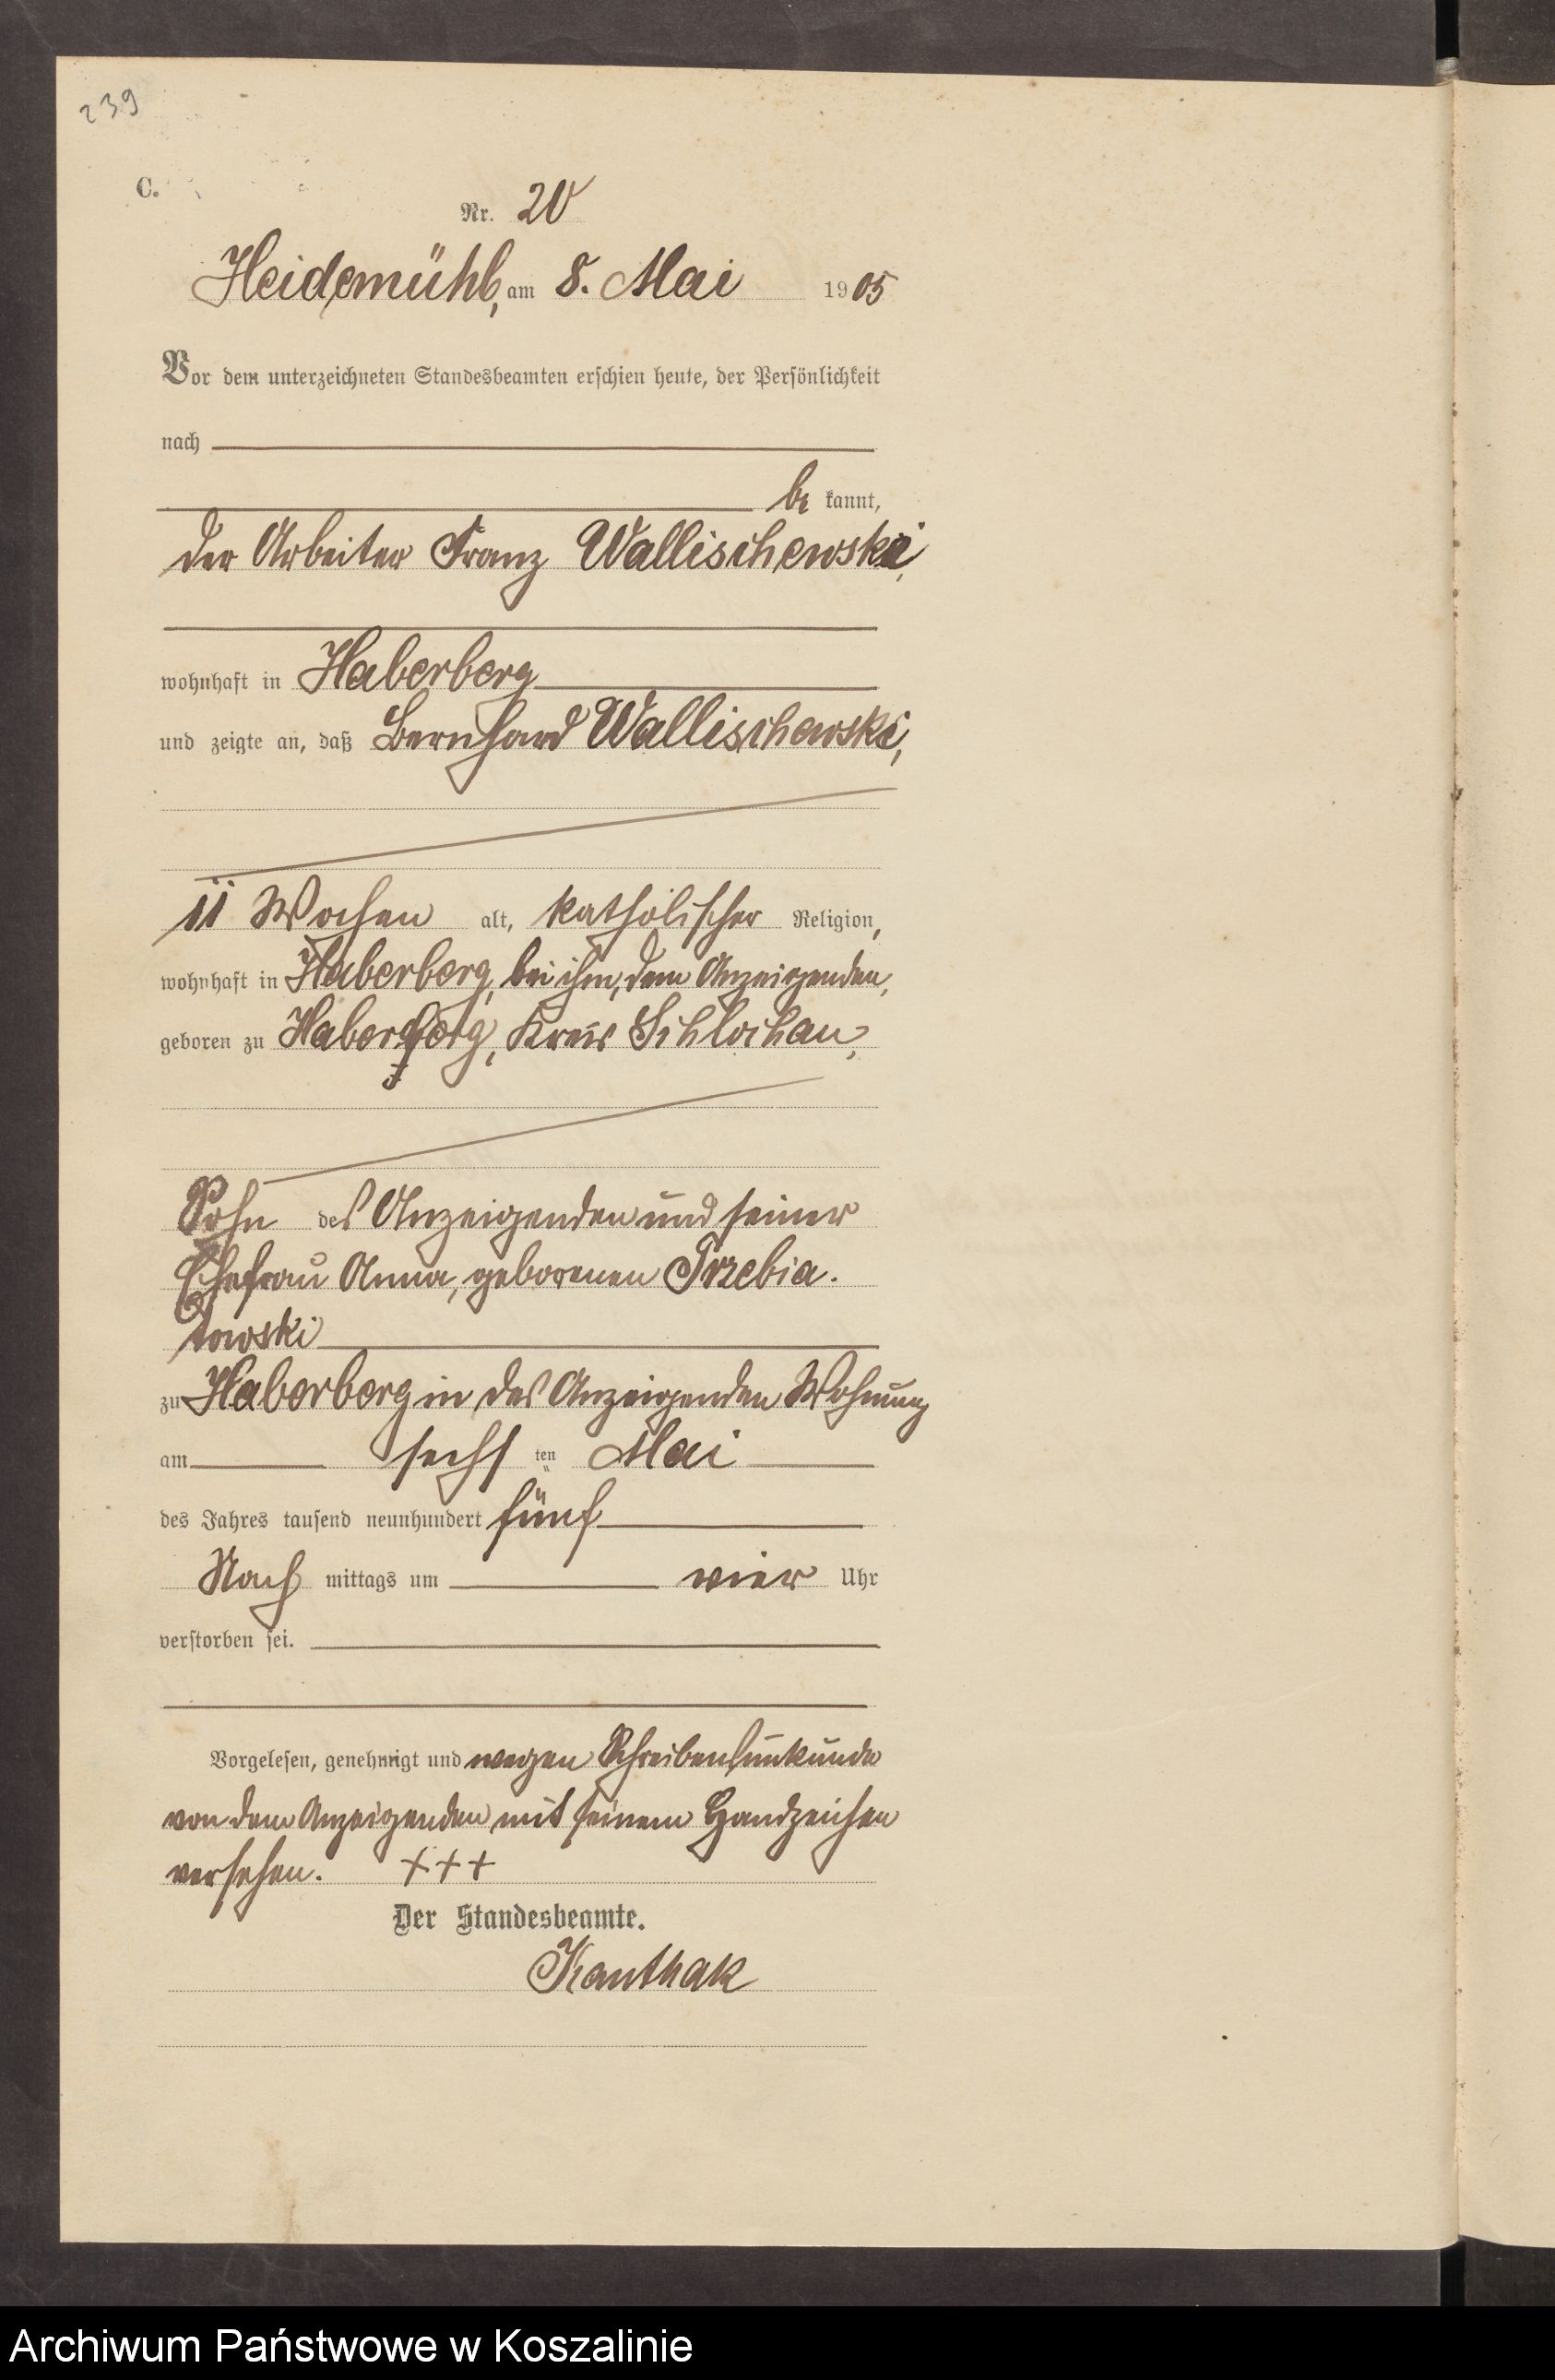 239
C.
Nr. 20
Heidemühl, am 8. Mai 1905
Vor dem unterzeichneten Standesbeamten erschien heute, der Persönlichkeit
nach
be kannt,
der Arbeiter Franz Wallischewski,
wohnhaft in Haberberg
und zeigte an, daß Bernhard Wallischewski,
11 Wochen alt, katholischer Religion,
wohnhaft in Haberberg, bei ihm, dem Anzeigenden,
geboren zu Haberberg, Kreis Schlochau,
Sohn des Anzeigenden und seiner
Ehefrau Anna, geborenen Trzebia-
towski
zu Haberberg in des Anzeigenden Wohnung
am sechsten Mai
des Jahres tausend neunhundert fünf
Nach mittags um vier Uhr
verstorben sei.
Vorgelesen, genehmigt und wegen Schreibensunkunde
von dem Anzeigenden mit seinem Handzeichen
versehen. +++
Der Standesbeamte.
Kanthak
Archiwum Państwowe w Koszalinie